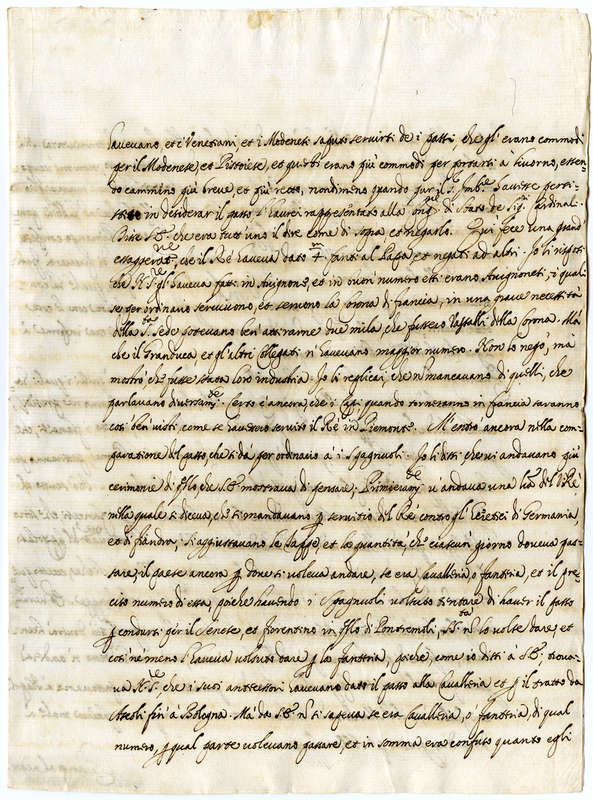 havevano, et i Venetiani et i Modenesi saputo servirsi de i passi, che gl'erano commodi
per il Modenese, et Pistoiese, et questi erano più commodi per portarsi à livorno, essen-
do cammino più breve, et più recto, nondimeno quando pur il S.r Amb.re havesse persi-
stito in desiderar il passo l'haurei rappresentato alla Cong.ne di stato de Sig.ri Cardinali.
Disse S.E. che era tutt'uno il dire come di sopra et negarlo. Qui fece una grand'
essageratione, che il Rè haveva dato fanti al Papa et negati ad altri. Io li risposi
che N.S.re gl'haveva fatti in Avignone, et in buon numero essi erano Avignonesi, i quali
se per ordinario servivono, et servono la Corona di francia, in una grave necessità
della S.ta Sede potevano ben'attirarne due mila, che fussero Vassalli della Corona. Mà
che il Granduca et gl'altri Collegati n'havevano maggior numero. Non lo negò, ma
mostrò che fusse stata loro industria. Io li replicai, che n'mancavano di quelli, che
parlavano diversam.te Certo è ancora, che i Capi quando torneranno in francia saranno
così ben visti, come se havessero servito il Rè in Piemonte. M'entrò ancora nella com-
paratione del passo, che si dà per ordinario à i Spagnuoli. Io li dissi che vi andavano più
cerimonie di q.llo, che S.E. mostrava di pensare. Primieram.te v'andava una l'ra del V.Rè
nella quale si diceva, che si mandavano p servitio del Rè contro gl'Eretici di Germania,
et di fiandra, si aggiustavano le tappe, et la quantità, che ciascun giorno doveva pas-
sare, il paese ancora p dove si voleva andare, se era cavalleria ò fanteria, et il pre-
ciso numero di essa, poiche havendo i Spagnuoli voluto tentare di haver il passo
p condursi per il Senese, et fiorentino in q.llo di Pontremoli, S.S.ta n' lo volse dare, et
così nè meno l'haveva voluto dare p la fanteria, poiche, come io dissi à S.E., trova-
va N.S.re che i suoi antecessori havevano dato il passo alla Cavalleria et p il tratto da
Ascoli fin'à Bologna. Mà da S.E. n' si sapeva se era Cavalleria, ò fanteria, di qual
numero, p qual parte volevano passare, et in somma era confuso quanto egli